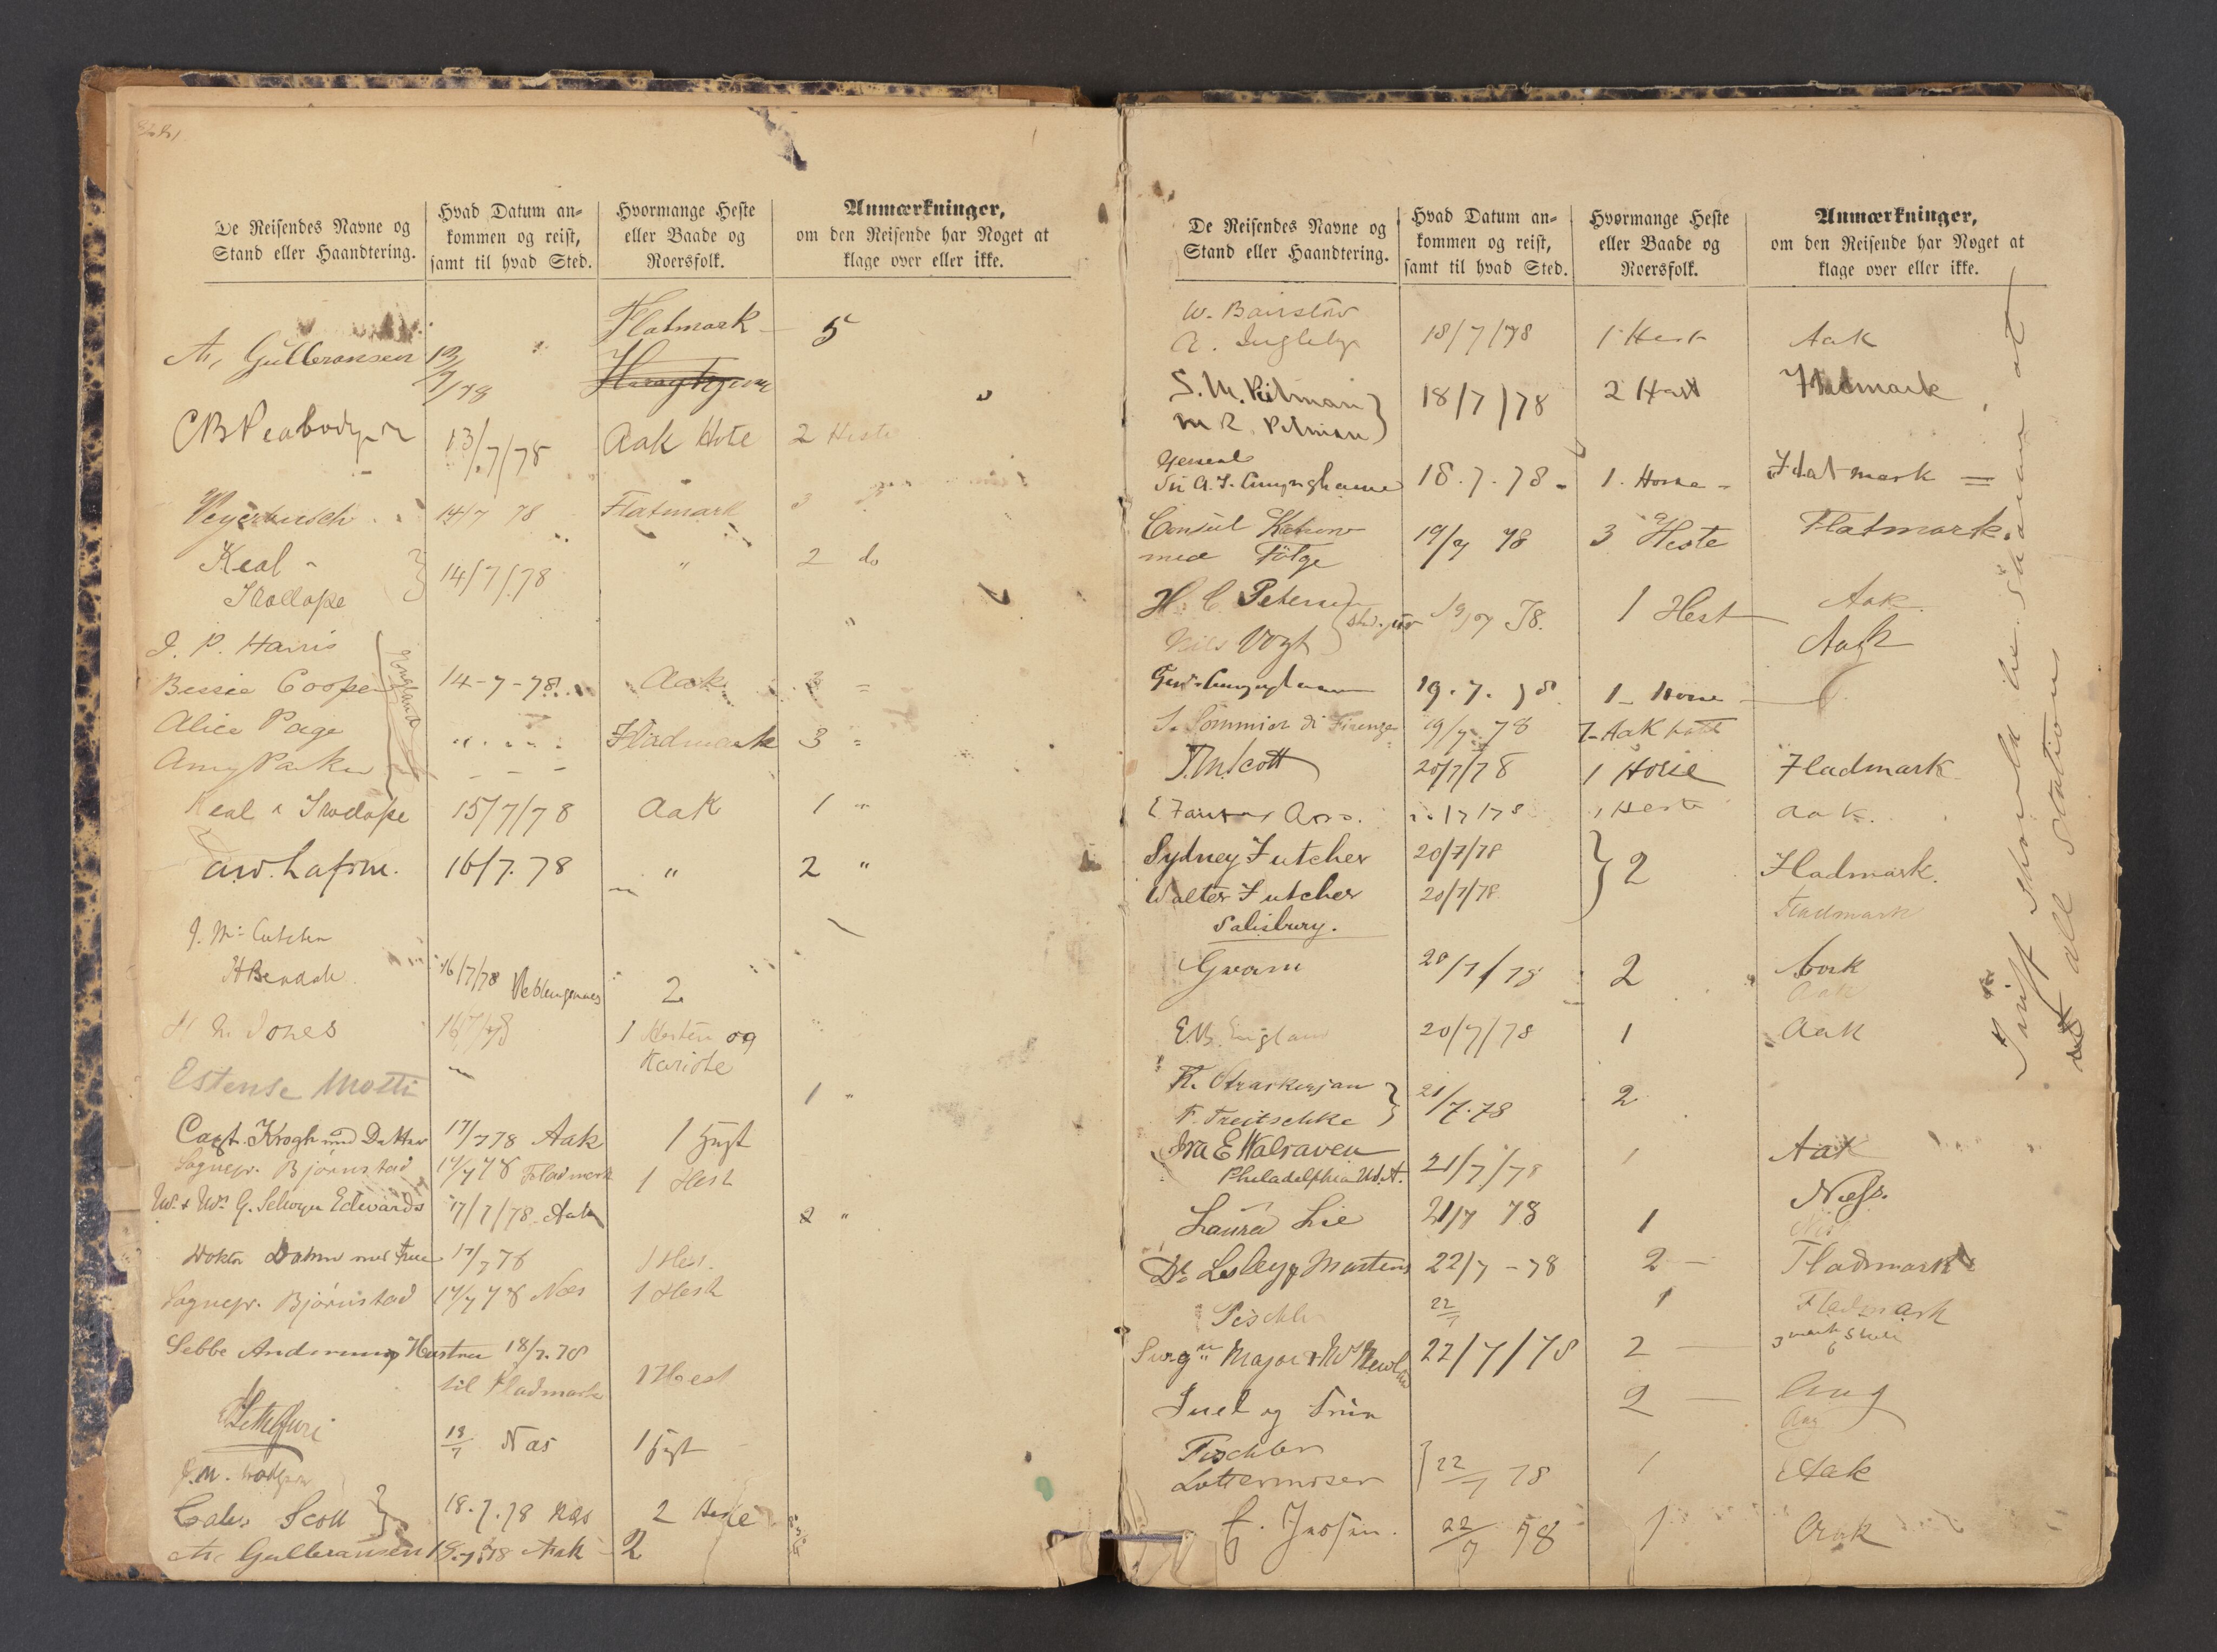 De Reisendes Navne og
Stand eller Haandtering.
Hvad Datum an-
kommen og reist,
samt til hvad Sted.
Hvormange Heste
eller Baade og
Roersfolk.
Anmærkninger,
om den Reisende har Noget at
klage over eller ikke.
Flatmark 5
A. Gulbransen 13/7/78
CB Peabody 13/7/78 Aak Hote 2 Heste
Weyerbusch 14/7 78 Flatmark 3
Keal
Trollope 14/7/78 " 2 do
J. P. Harris
Bessie Cooper 14-7-78 Aak
England
Alice Page Fladmark 3 =
Amy Parker
Keal & Trollope 15/7/78 Aak 1 "
16/7.78 " 2 "
J. Mc Cutchen
16/7/78 Veblungsnes 2
Jones 16/7/78 1 Hesten og
Kariole
Estense Motti 1 "
Capt. Krogh med Datter 17/7 78 Aak 1 Hest
Sognepr. Bjørnstad 17/7 78 Fladmark 1 Hest
Mr. & Mrs G. Selwyn Edwards 17/7/78 Aak 2 "
Doktor med Frue 17/7 78 1 Hes.
Sognepr. Bjørnstad 17/7 78 Næs 1 Hest
Sebbe Hustru 18/7.78
til Fladmark 1 Hest
18/7 Næs 1 Hest
J. M.
Scott 18.7.78 Næs 2 Heste
A. Gulbransen 18.7.78 Aak 2
De Reisendes Navne og
Stand eller Haandtering.
Hvad Datum an-
kommen og reist,
samt til hvad Sted.
Hvormange Heste
eller Baade og
Roersfolk.
Anmærkninger,
om den Reisende har Noget at
klage over eller ikke.
W. Bairstow
A. Ingleby 18/7/78 1 Hest Aak
S. M. Pitman
M R. Pitman 18/7/78 2 Hest Fladmark
General
Sir A. T. Cunynghame 18.7.78- 1. Horse - Flatmark =
Consul
med Følge 19/7 78 3 Heste Flatmark.
H. C. Petersen 19/7 78. 1 Hest Aak.
Nils Vogt stud. jur Aak
Genl Cunynghame 19.7.78 1- Horse
S. Sommier di Firenze 19/7 78 1- Aak
T. M. Scott 20/7/78 1 Horse Fladmark
1 Heste aak.
Sydney Futcher 20/7/78
2 Fladmark.
Walter Futcher 20/7/78
Fladmark
Salisbury.
Gram 20/7/78 2 Aak
Aak
E.B. England 20/7/78 1 Aak
F. Treitschke 21/7.78 2
Ira E Walraven
Philadelphia U.S.A. 21/7/78 1 Aak
Næss.
Laura Lie 21/7 78 1
Dr Lesley & Martens 22/7-78 2 - Fladmark
Tischler 22/7 1 Fladmark
Surgn Major & Mrs 22/7/78 2
Juel og Frue 2 - Aag
Aag
Tischler
Lottermoser 22/7 78 1 Aak
22/7 78 1 Aak
Tariff should be shown at
at all stations